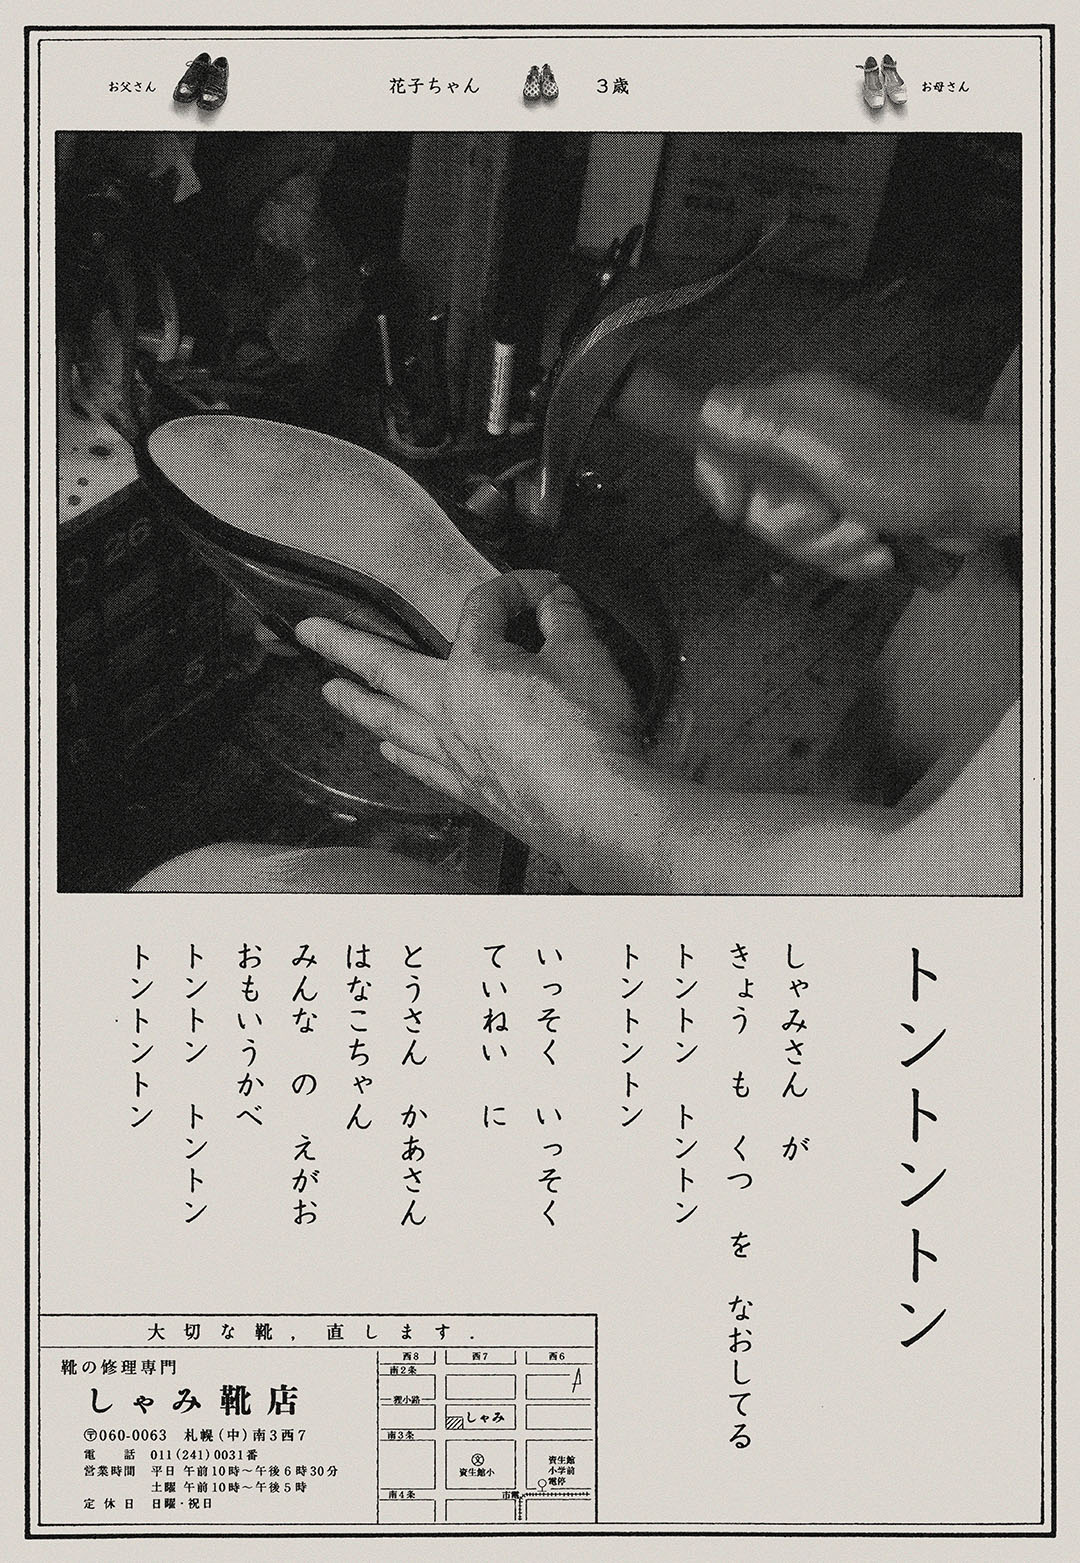 お父さん
花子ちゃん 3歳
お母さん
トントントン
しゃみさん が
きょう も くつ を なおしてる
トントン トントン
トントントン
いっそく いっそく
ていねい に
とうさん かあさん
はなこちゃん
みんな の えがお
おもいうかべ
トントン トントン
トントントン
大切な靴,直します.
靴の修理専門
しゃみ靴店
〶060-0063 札幌(中)南3西7
電話 011(241)0031番
営業時間 平日 午前10時~午後6時30分
土曜 午前10時~午後5時
定休日 日曜・祝日
西8 西7 西6
南2条
狸小路
しゃみ
南3条
文
資生館小
資生館
小学前
電停
南4条
市電